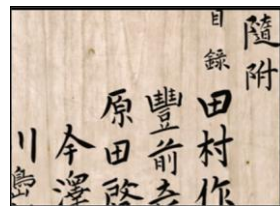 隨附
目録
田村作
豐前
原田啓
今澤
川島